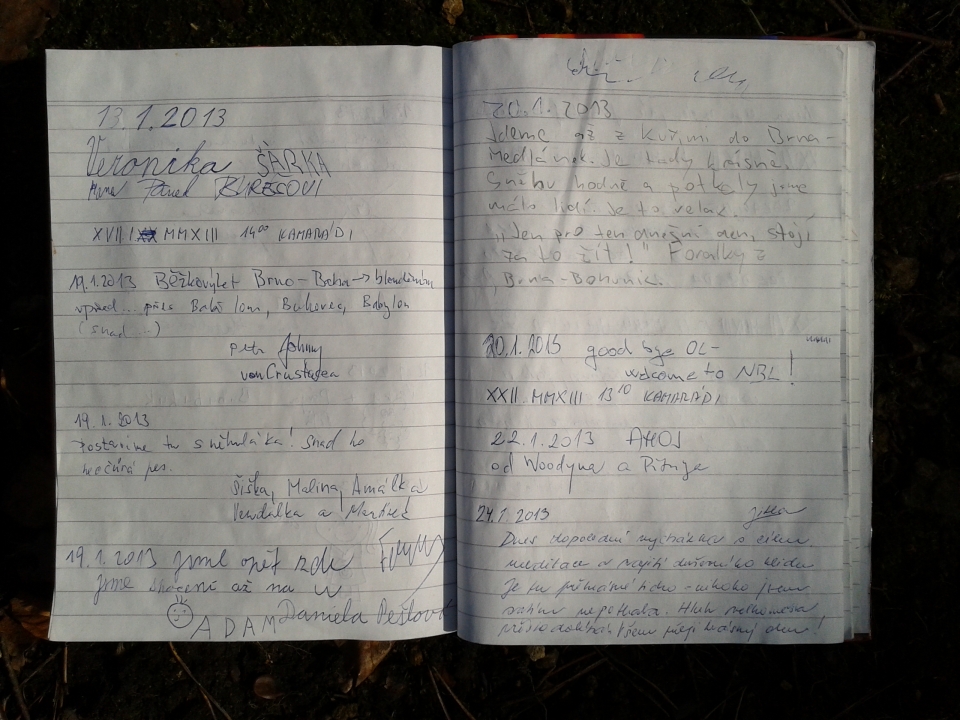 13.1.2013
Veronika ŠÁRKA
Pavel BUREŠOVI
XVII I MMXIII 14⁰⁰ KAMARÁDI
19.1.2013 Běžkovýlet Brno - Baba → bloudění
vpřed... přes Babí lom, Bukovec, Babylon
(snad...)
petr Johny
von Crustagea
19.1.2013
Postavíme tu sněhuláka! Snad ho
neočůrá pes.
Šiška, Malina, Amálka
Vendálka a Mařenek
19.1.2013 jsme opět zde
jsme až na
ADAM Daniela Pešlová
20.1.2013
Jdeme až z Kuřimi do Brna-
Medlánek. Je tady krásně.
Sněhu hodně a potkaly jsme
málo lidí. Je to relax.
"Jen pro ten dnešní den, stojí
za to žít!" Poradky z
Brna-Bohunic.
20.1.2013 good bye OL-
welcome to NBL!
XXII MMXIII 13¹⁰ KAMARÁDI
22.1.2013 AHOJ
od Woodyna a Pitrýse
24.1.2013 Jitka
Dnes dopolední vycházka s cílem
meditace a najití duševního klidu
Je tu
nepotkala. Hluk
Všem přeji krásný den!